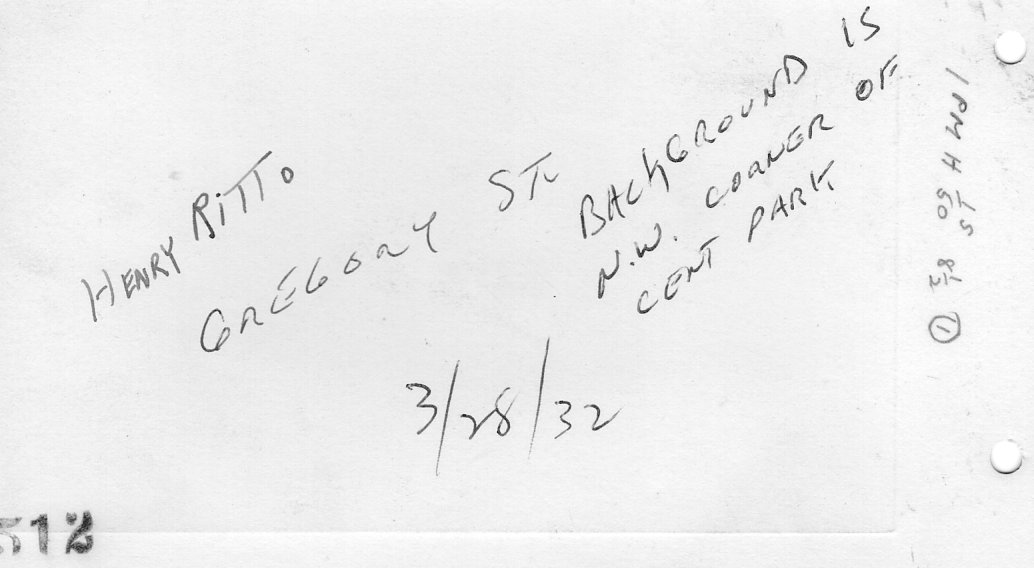 HENRY RITTO
GREGORY ST.
BACKGROUND IS
N.W. CORNER OF
CENT PARK
3/28/32
512